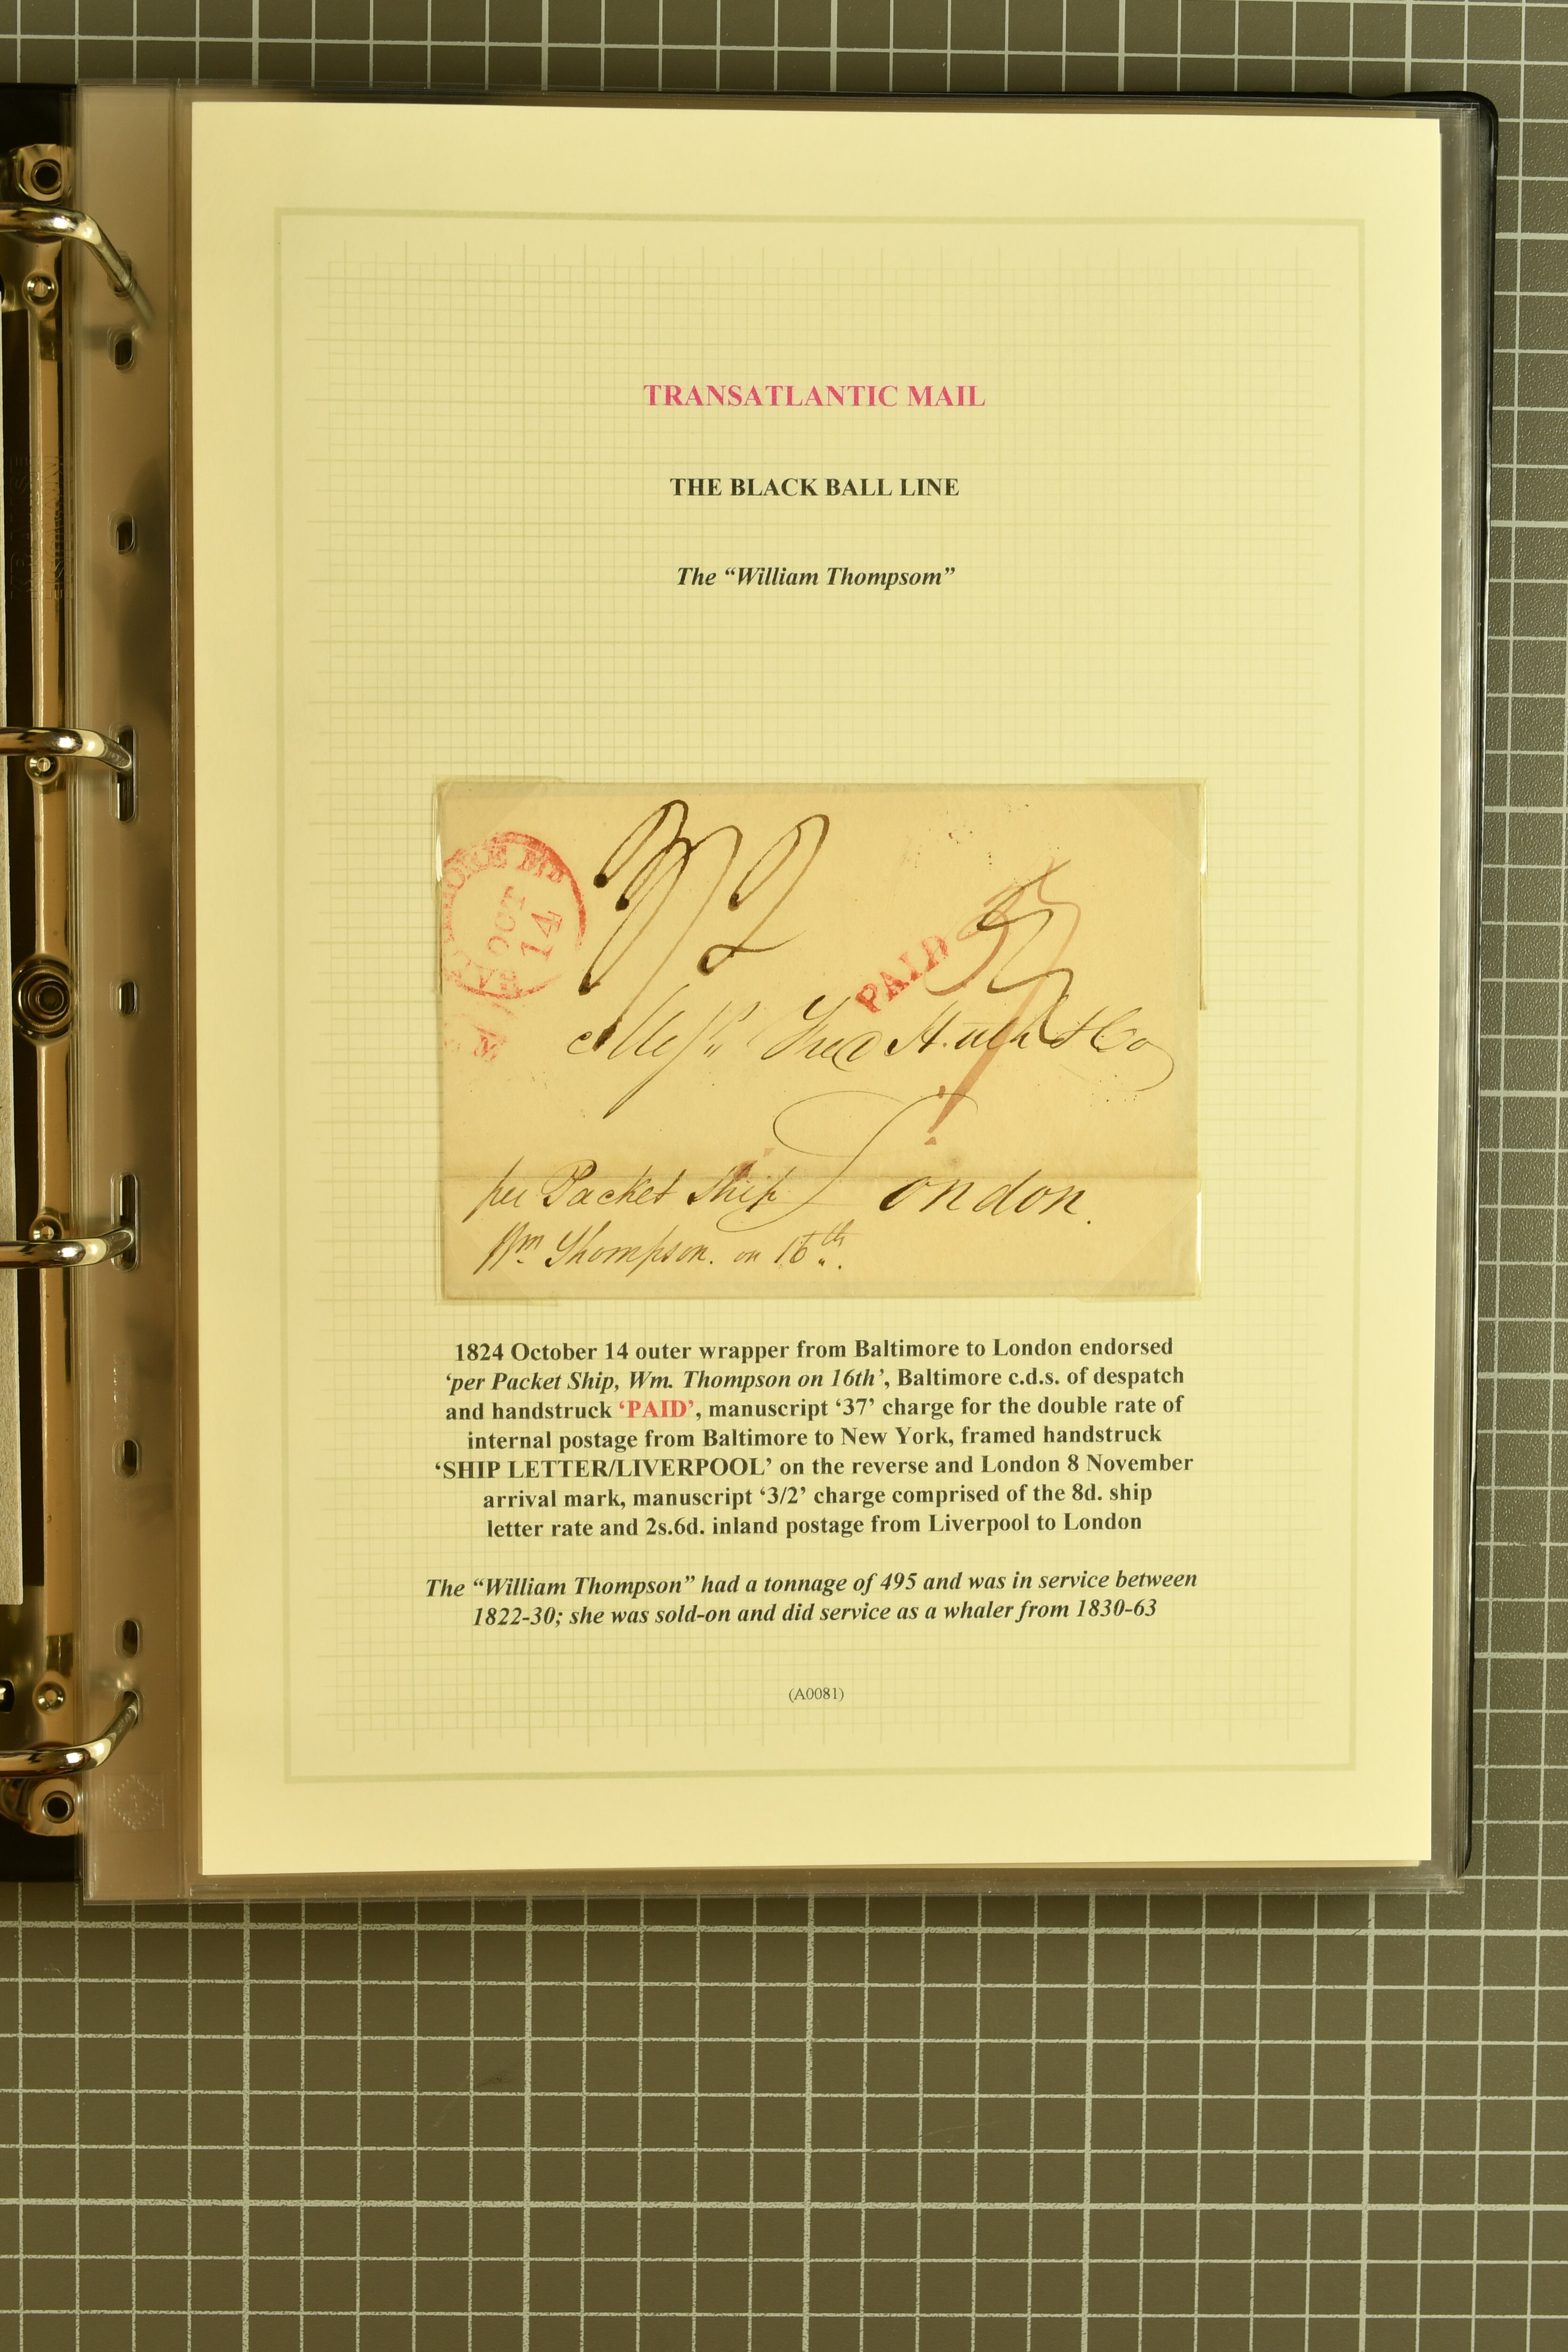 TRANSATLANTIC MAIL
THE BLACK BALL LINE
The “William Thompsom”
OCT
14
PAID
37
3/2
Messrs Fred Huth & Co
London.
per Packet Ship
Wm Thompson. on 16th.
1824 October 14 outer wrapper from Baltimore to London endorsed
‘per Packet Ship, Wm. Thompson on 16th’, Baltimore c.d.s. of despatch
and handstruck ‘PAID’, manuscript ‘37’ charge for the double rate of
internal postage from Baltimore to New York, framed handstruck
‘SHIP LETTER/LIVERPOOL’ on the reverse and London 8 November
arrival mark, manuscript ‘3/2’ charge comprised of the 8d. ship
letter rate and 2s.6d. inland postage from Liverpool to London
The “William Thompson” had a tonnage of 495 and was in service between
1822-30; she was sold-on and did service as a whaler from 1830-63
(A0081)